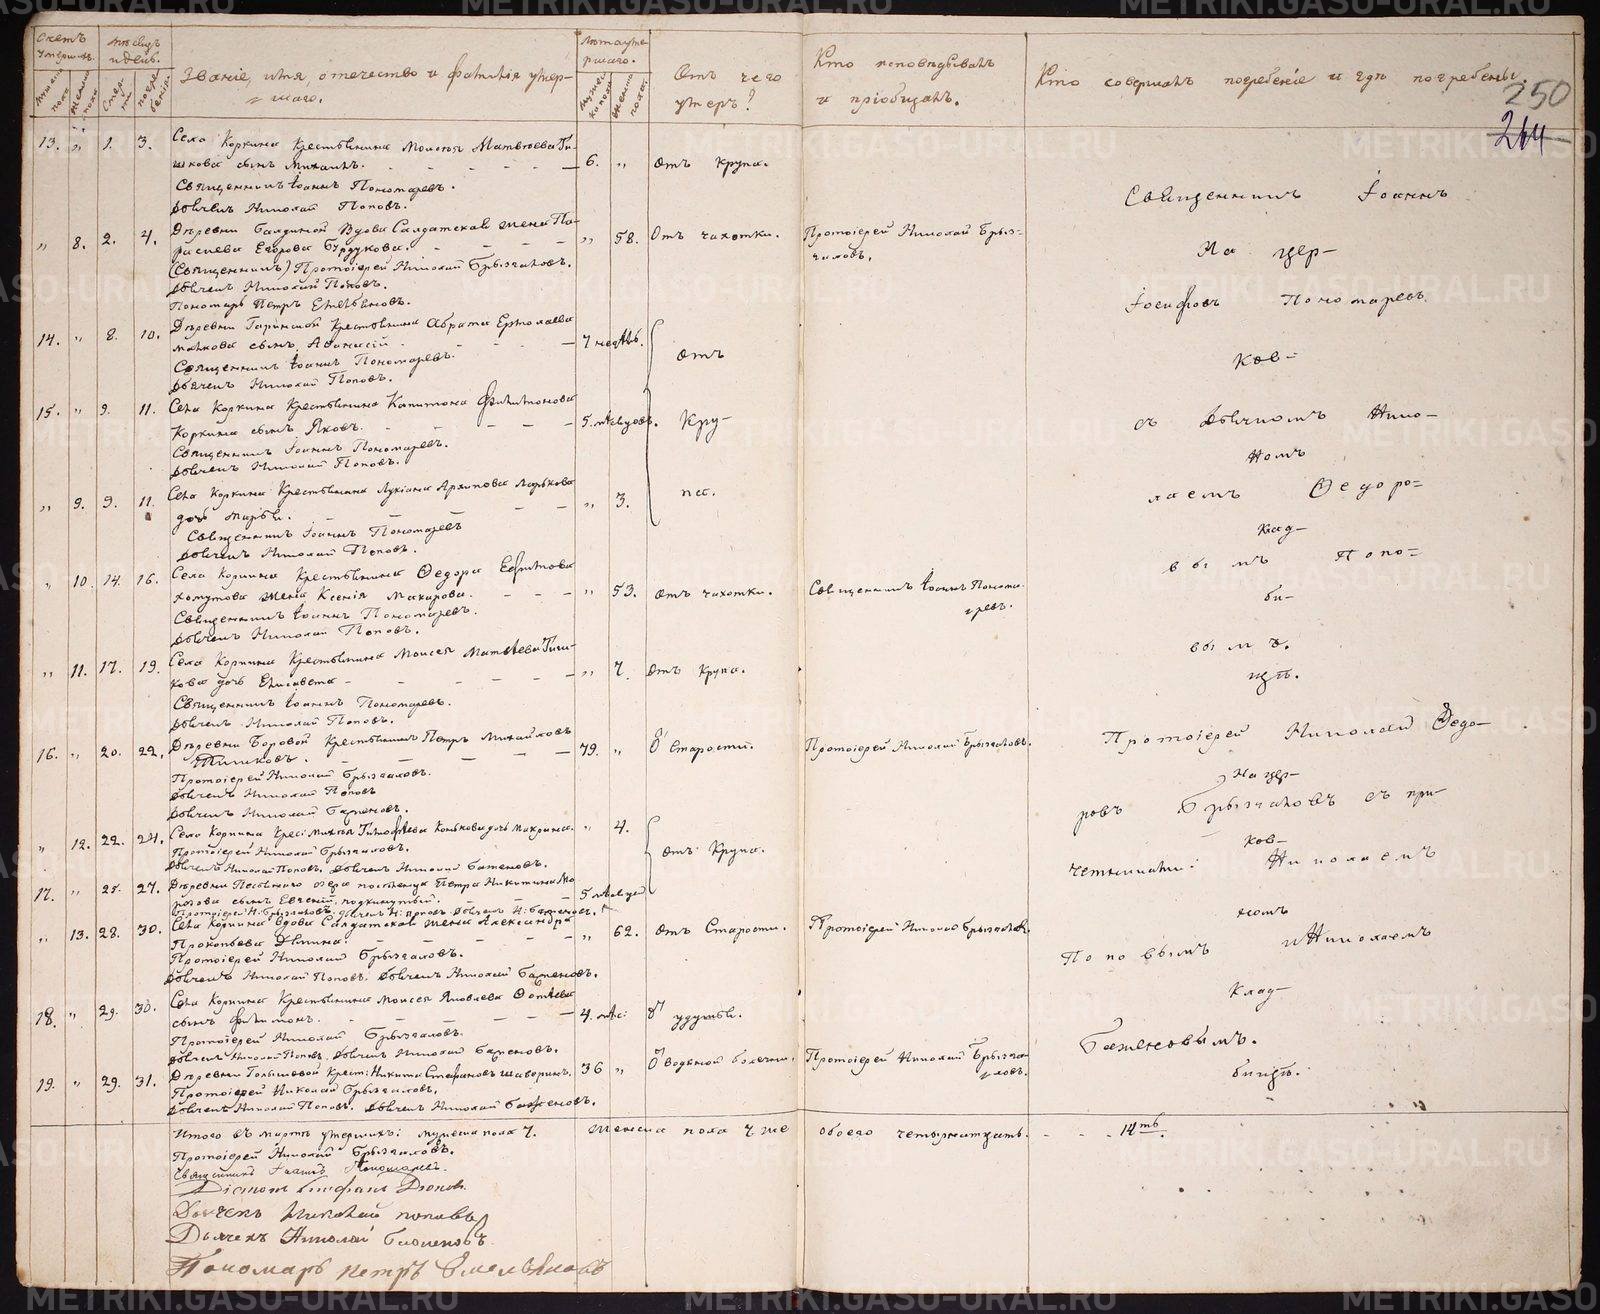 METRIKI.GASO-URAL.RU
Счетъ умершихъ.
Мѣсяцъ и день.
Званіе, имя, отечество и фамилія умер-
шаго.
Лѣта умершаго.
Отъ чего
умеръ?
Кто исповѣдывалъ
и пріобщалъ.
Кто совершалъ погребеніе и гдѣ погребены.
250
264
13. „ 1. 3. Села Коркина Крестьянина Моисея Матвѣева Ги-
шкова сынъ Михаилъ. 6. „ отъ крупа.
Священникъ Іоаннъ Пономаревъ.
Дьячекъ Николай Поповъ.
Священникъ Іоаннъ
„ 8. 2. 4. Деревни Вдова Салдатская жена Па-
раскева Егорова Бурдукова. „ 58. Отъ чахотки. Протоіерей Николай Брыз-
галовъ.
(Священникъ) Протоіерей Николай Брызгаловъ.
Дьячекъ Николай Поповъ.
Пономарь Петръ Емельяновъ.
На цер-
Іосифовъ Пономаревъ
14. „ 8. 10. Деревни Крестьянина Ермолаева
сынъ Аѳанасій 7 недѣль. отъ
Священникъ Іоаннъ Пономаревъ.
Дьячекъ Николай Поповъ.
ков-
15. „ 9. 11. Села Коркина Крестьянина Капитона Филимонова
Коркина сынъ Яковъ. 5. мѣсяцовъ. Кру-
Священникъ Іоаннъ Пономаревъ.
Дьячекъ Николай Поповъ.
съ дьячкомъ Нико-
номъ
„ 9. 9. 11. Села Коркина Крестьянина Лукіана Архипова
дочь Марѳа. „ 3. па.
Священникъ Іоаннъ Пономаревъ
Дьячекъ Николай Поповъ.
лаемъ Ѳедоро-
клад-
„ 10. 14. 16. Села Коркина Крестьянина Ѳедора Ефимова
Хомутова жена Ксенія Макарова. „ 53. отъ чахотки. Священникъ Іоаннъ Понома-
ревъ.
Священникъ Іоаннъ Пономаревъ.
Дьячекъ Николай Поповъ.
вымъ Попо-
би-
„ 11. 17. 19. Села Коркина Крестьянина Моисея Матвѣева Гиш-
кова дочь Елисавета „ 7. отъ крупа.
Священникъ Іоаннъ Пономаревъ.
Дьячекъ Николай Поповъ.
вымъ.
щѣ.
16. „ 20. 22. Деревни Боровой Крестьянинъ Петръ Михайловъ
79. „ Отъ Старости. Протоіерей Николай Брызгаловъ.
Протоіерей Николай Брызгаловъ.
Дьячекъ Николай Поповъ
Дьячекъ Николай Баженовъ.
Протоіерей Николай Ѳедо-
На цер-
ровъ Брызгаловъ съ при-
„ 12. 22. 24. Села Коркина Крест: Тимофѣева Конькова дочь „ 4. отъ Крупа.
Протоіерей Николай Брызгаловъ.
Дьячекъ Николай Поповъ. Дьячекъ Николай Баженовъ.
ков-
четниками: Николаемъ
17. „ 25. 27. Деревни озера поселенца Петра Никитина Мо-
розова сынъ Евгеній, подкинутый. 5 мѣсяцевъ
Протоіерей Н: Брызгаловъ. Дьячекъ Н: Поповъ. Дьячекъ Н: Баженовъ.
номъ
„ 13. 28. 30. Села Коркина Вдова Салдатская жена Александра
Прокопьева Демина. „ 62. отъ Старости. Протоіерей Николай Брызгаловъ.
Протоіерей Николай Брызгаловъ.
Дьячекъ Николай Поповъ. Дьячекъ Николай Баженовъ.
Поповымъ и Николаемъ
Клад-
18. „ 29. 30. Села Коркина Крестьянина Моисея Яковлева Ѳотѣева
сынъ Филимонъ. 4. мѣс: Отъ удушья.
Протоіерей Николай Брызгаловъ.
Дьячекъ Николай Поповъ. Дьячекъ Николай Баженовъ.
Баженовымъ.
19. „ 29. 31. Деревни Крест: Никита Стефановъ Шаворинъ. 36 „ Отъ водяной болезни. Протоіерей Николай Брызга-
ловъ.
Протоіерей Николай Брызгаловъ.
Дьячекъ Николай Поповъ. Дьячекъ Николай Баженовъ.
бищѣ.
Итого въ мартѣ умершихъ: мужеска пола 7. Женска пола 7 же обоего четырнатцать. 14ть.
Протоіерей Николай Брызгаловъ.
Священникъ Іоаннъ Пономаревъ.
Діаконъ Стефанъ
Дьячекъ Николай Поповъ
Дьячекъ Николай Баженовъ
Пономарь Петръ Емельяновъ